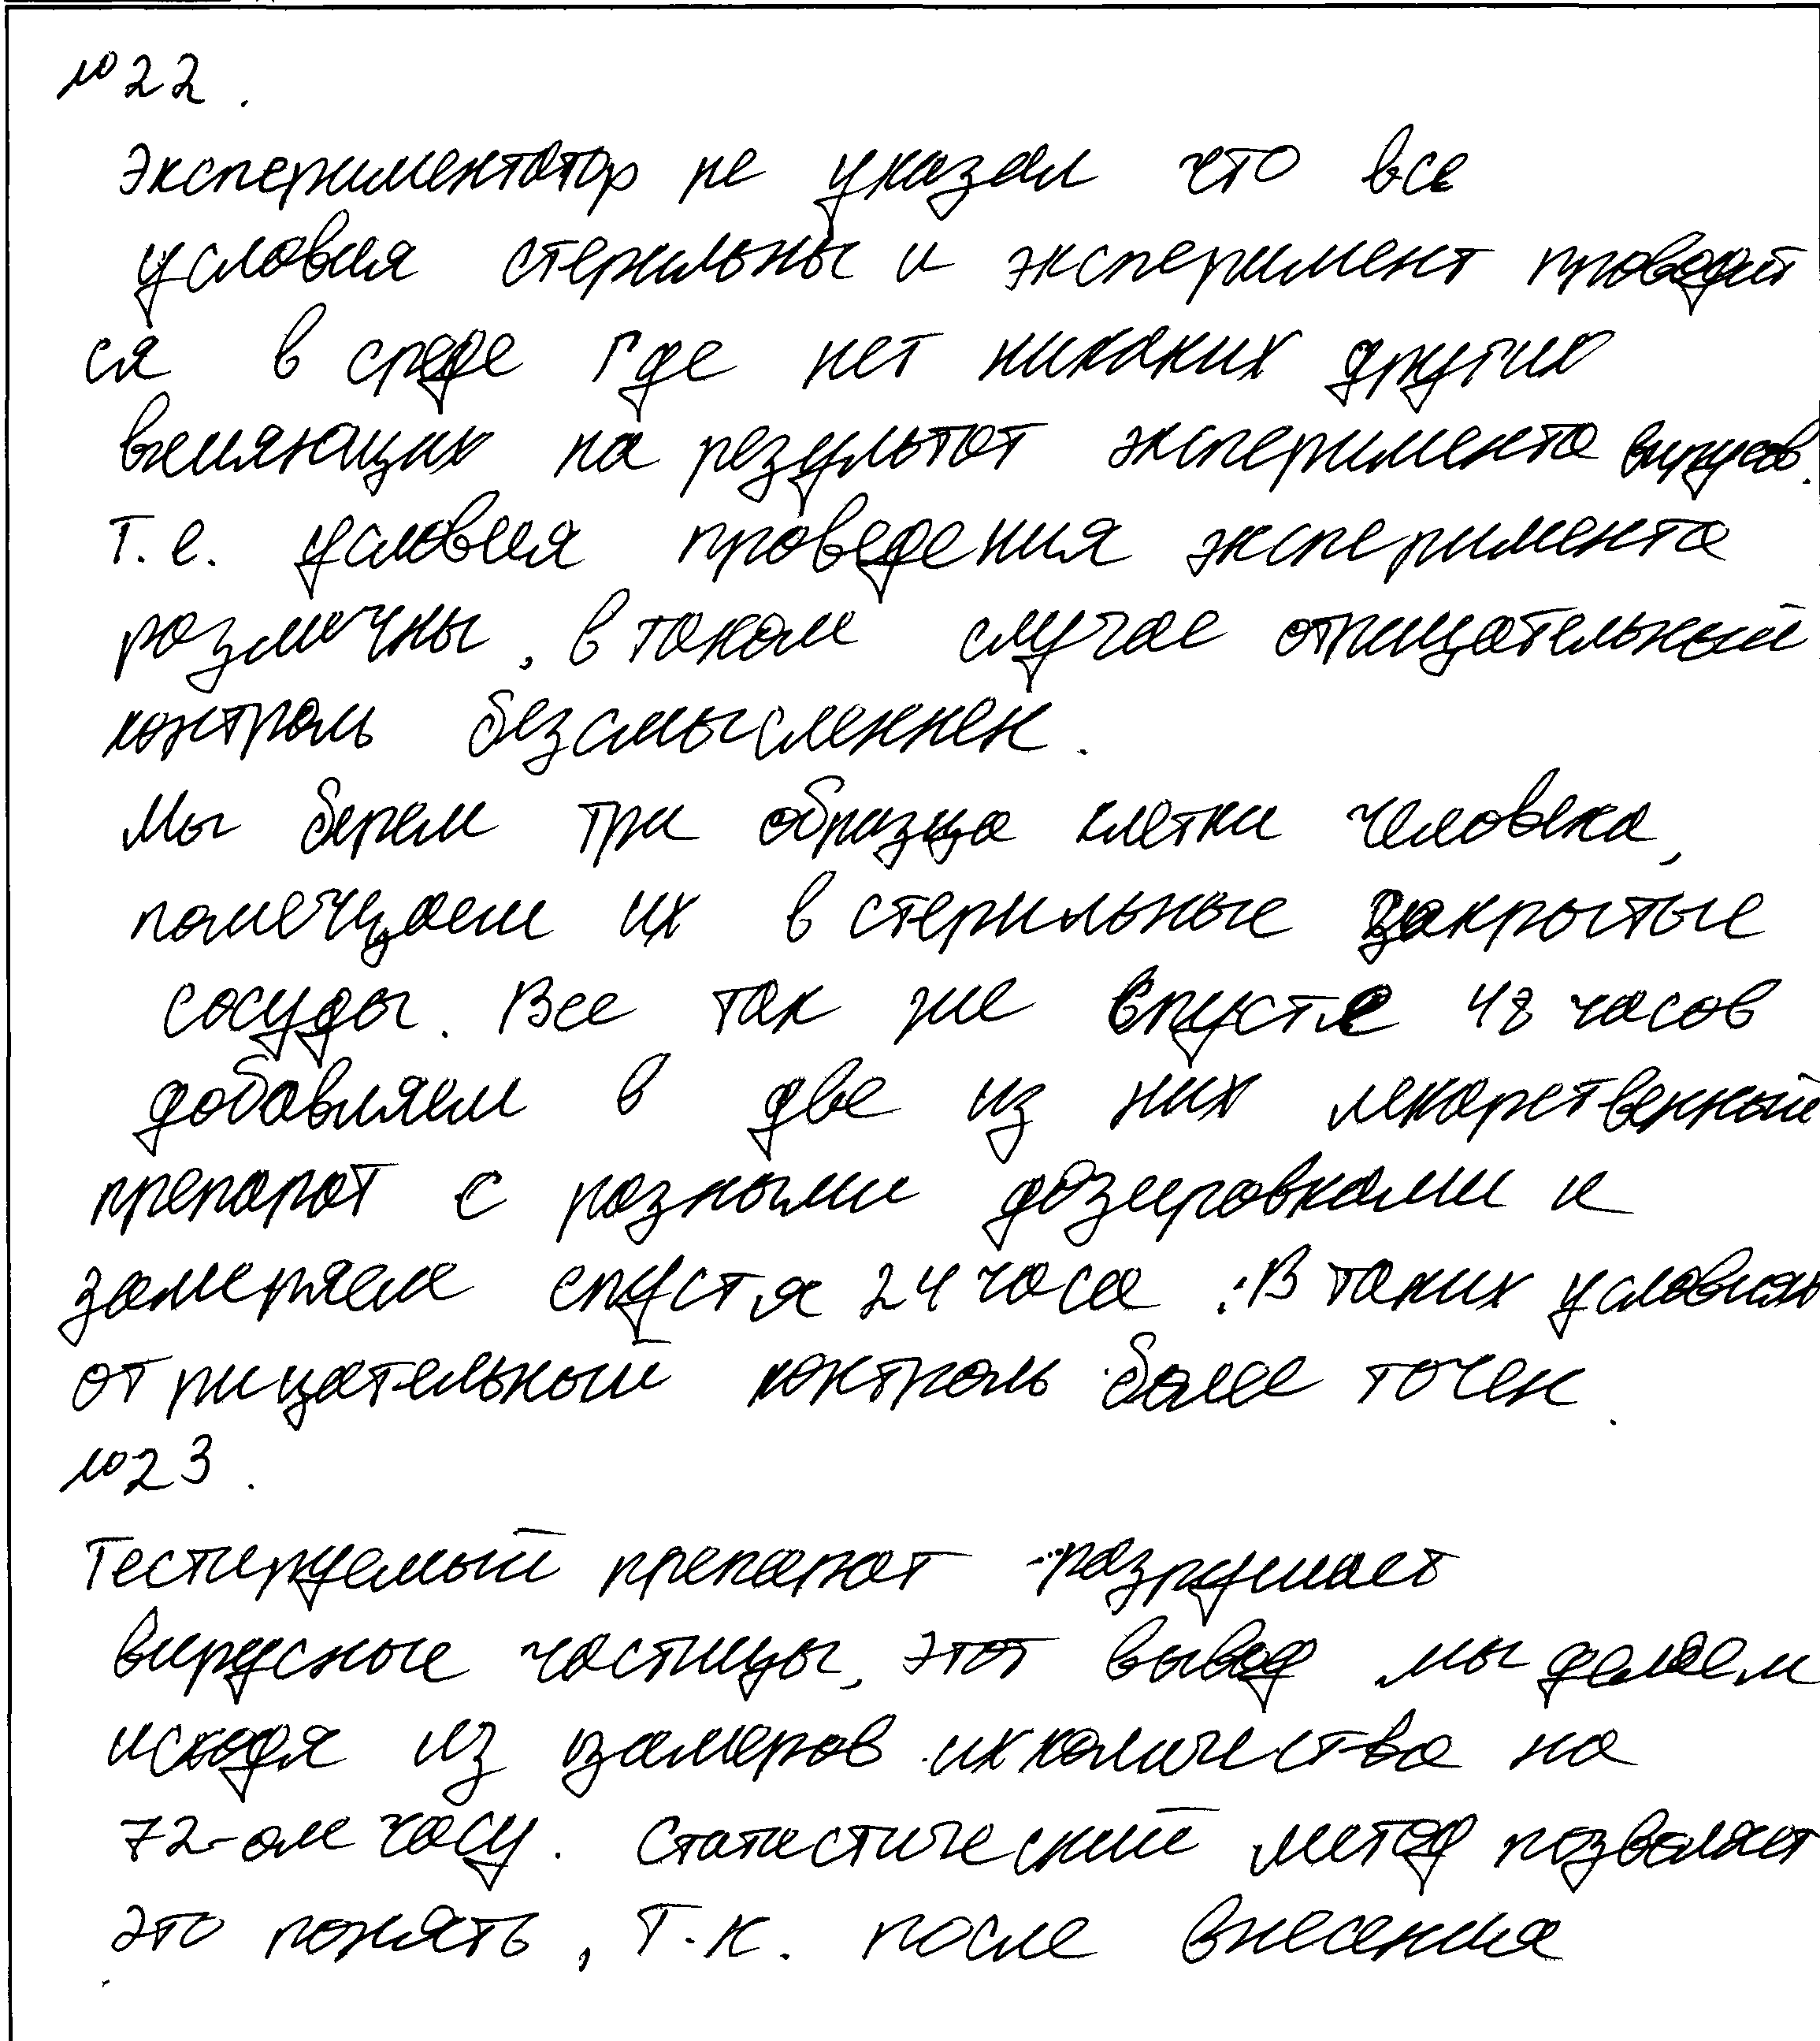 №22.
Экспериментатор не указал что все
условия стерильны и эксперимент проводит
ся в среде где нет никаких других
влияющих на результат эксперимента вирусов.
Т.е. условия проведения эксперимента
различны, в таком случае отрицательный
контроль безсмысленнен.
Мы берем три образца клетки человека,
помещаем их в стерильные закрытые
сосуды. Все так же спустя 48 часов
добавляем в две из них лекарственный
препарат с разными дозировками и
замеряем спустя 24 часа. В таких условиях
отрицательный контроль более точен.
№23.
Тестируемый препарат разрушает
вирусные частицы, этот вывод мы делаем
исходя из замеров их количества на
72-ом часу. Статистический метод позволяет
это понять, т.к. после внесения